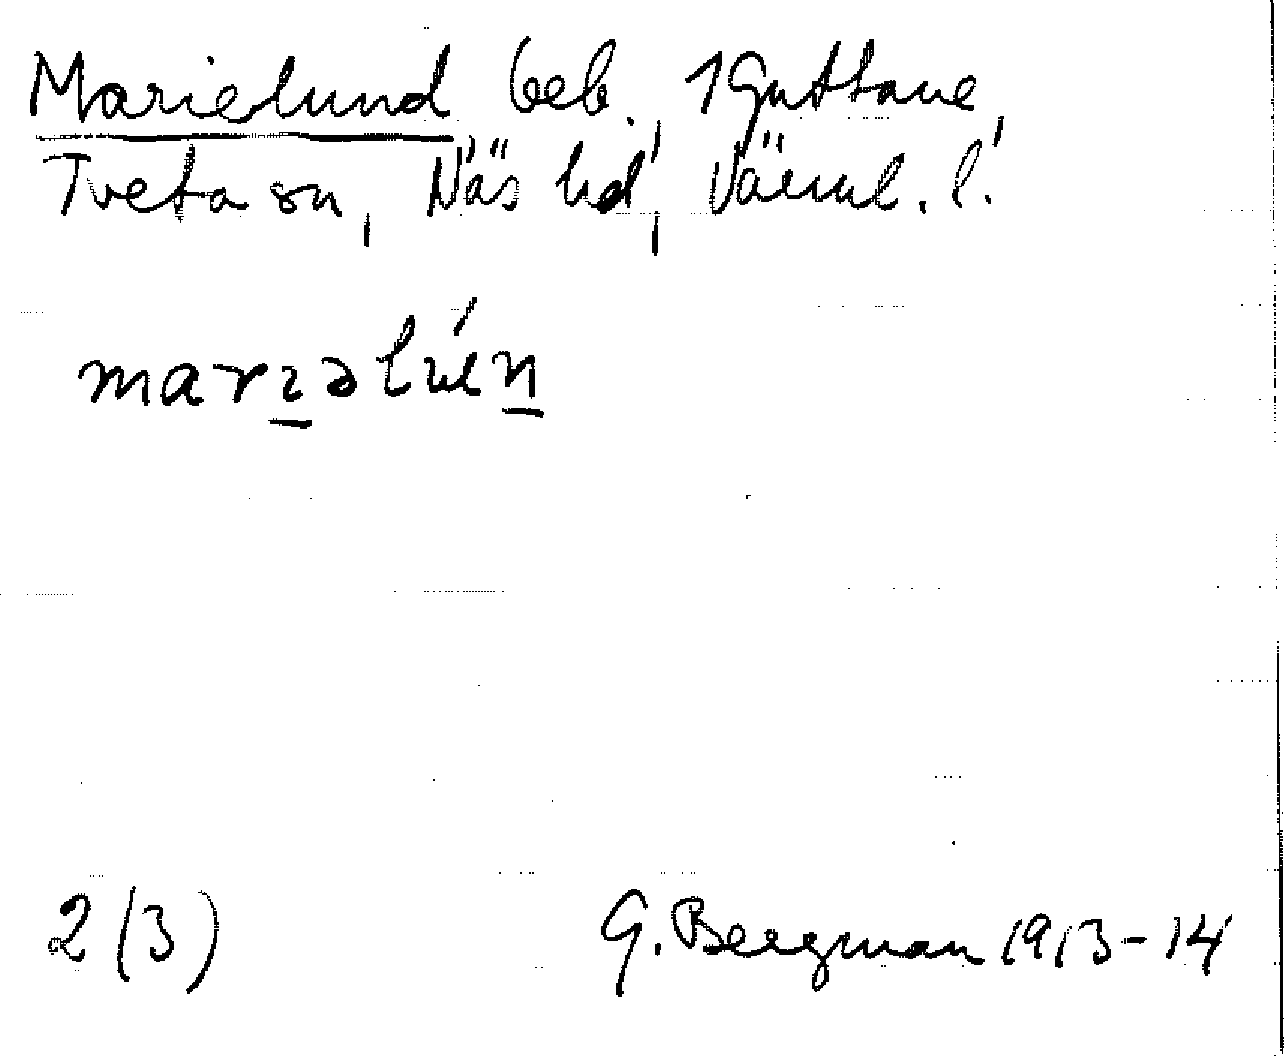 Marielund beb., 1 Guttane,
Tveta sn, Näs hd, Värml. l.
2 (3) G. Bergman 1913-14